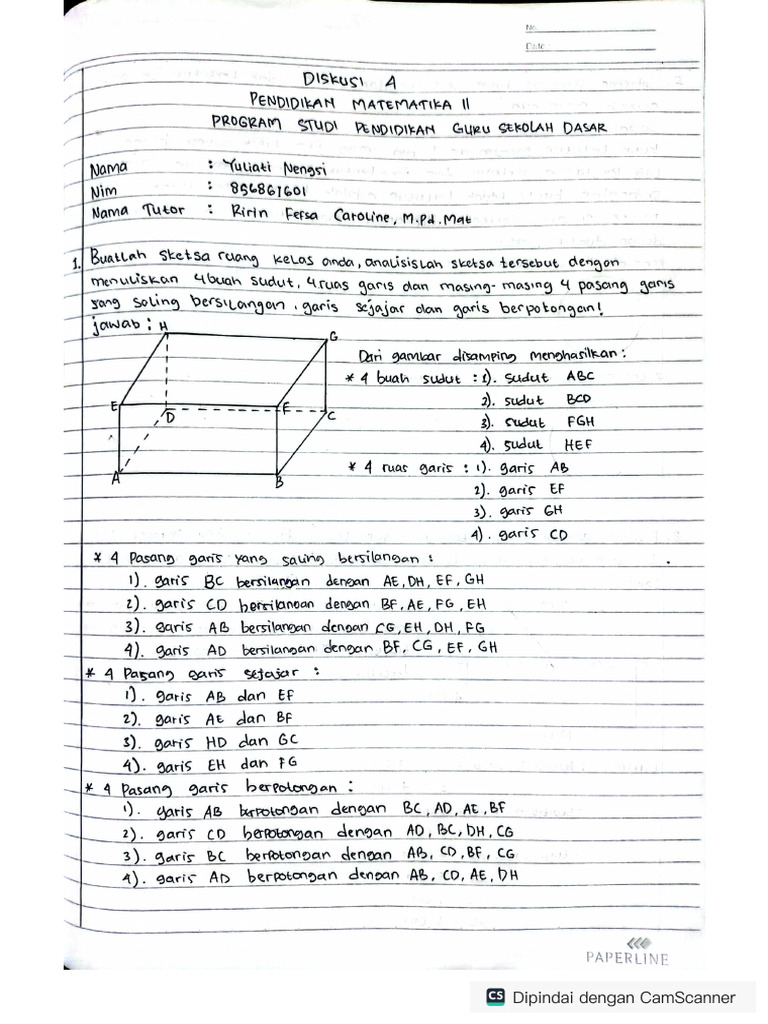 No.
Date
DISKUSI 4
PENDIDIKAN MATEMATIKA II
PROGRAM STUDI PENDIDIKAN GURU SEKOLAH DASAR
Nama : Yuliati Nengsi
Nim : 856861601
Nama Tutor : Ririn Fersa Caroline, M.Pd.Mat
1. Buatlah sketsa ruang kelas anda, analisislah sketsa tersebut dengan
menuliskan 4 buah sudut, 4 ruas garis dan masing-masing 4 pasang garis
yang saling bersilangan, garis sejajar dan garis berpotongan!
jawab :
H
G
E
F
D
C
A
B
Dari gambar disamping menghasilkan :
* 4 buah sudut : 1). sudut ABC
2). sudut BCD
3). sudut FGH
4). sudut HEF
* 4 ruas garis : 1). garis AB
2). garis EF
3). garis GH
4). garis CD
* 4 Pasang garis yang saling bersilangan :
1). garis BC bersilangan dengan AE, DH, EF, GH
2). garis CD bersilangan dengan BF, AE, FG, EH
3). garis AB bersilangan dengan CG, EH, DH, FG
4). garis AD bersilangan dengan BF, CG, EF, GH
* 4 Pasang garis sejajar :
1). garis AB dan EF
2). garis AE dan BF
3). garis HD dan GC
4). garis EH dan FG
* 4 Pasang garis berpotongan :
1). garis AB berpotongan dengan BC, AD, AE, BF
2). garis CD berpotongan dengan AD, BC, DH, CG
3). garis BC berpotongan dengan AB, CD, BF, CG
4). garis AD berpotongan dengan AB, CD, AE, DH
PAPERLINE
CS Dipindai dengan CamScanner